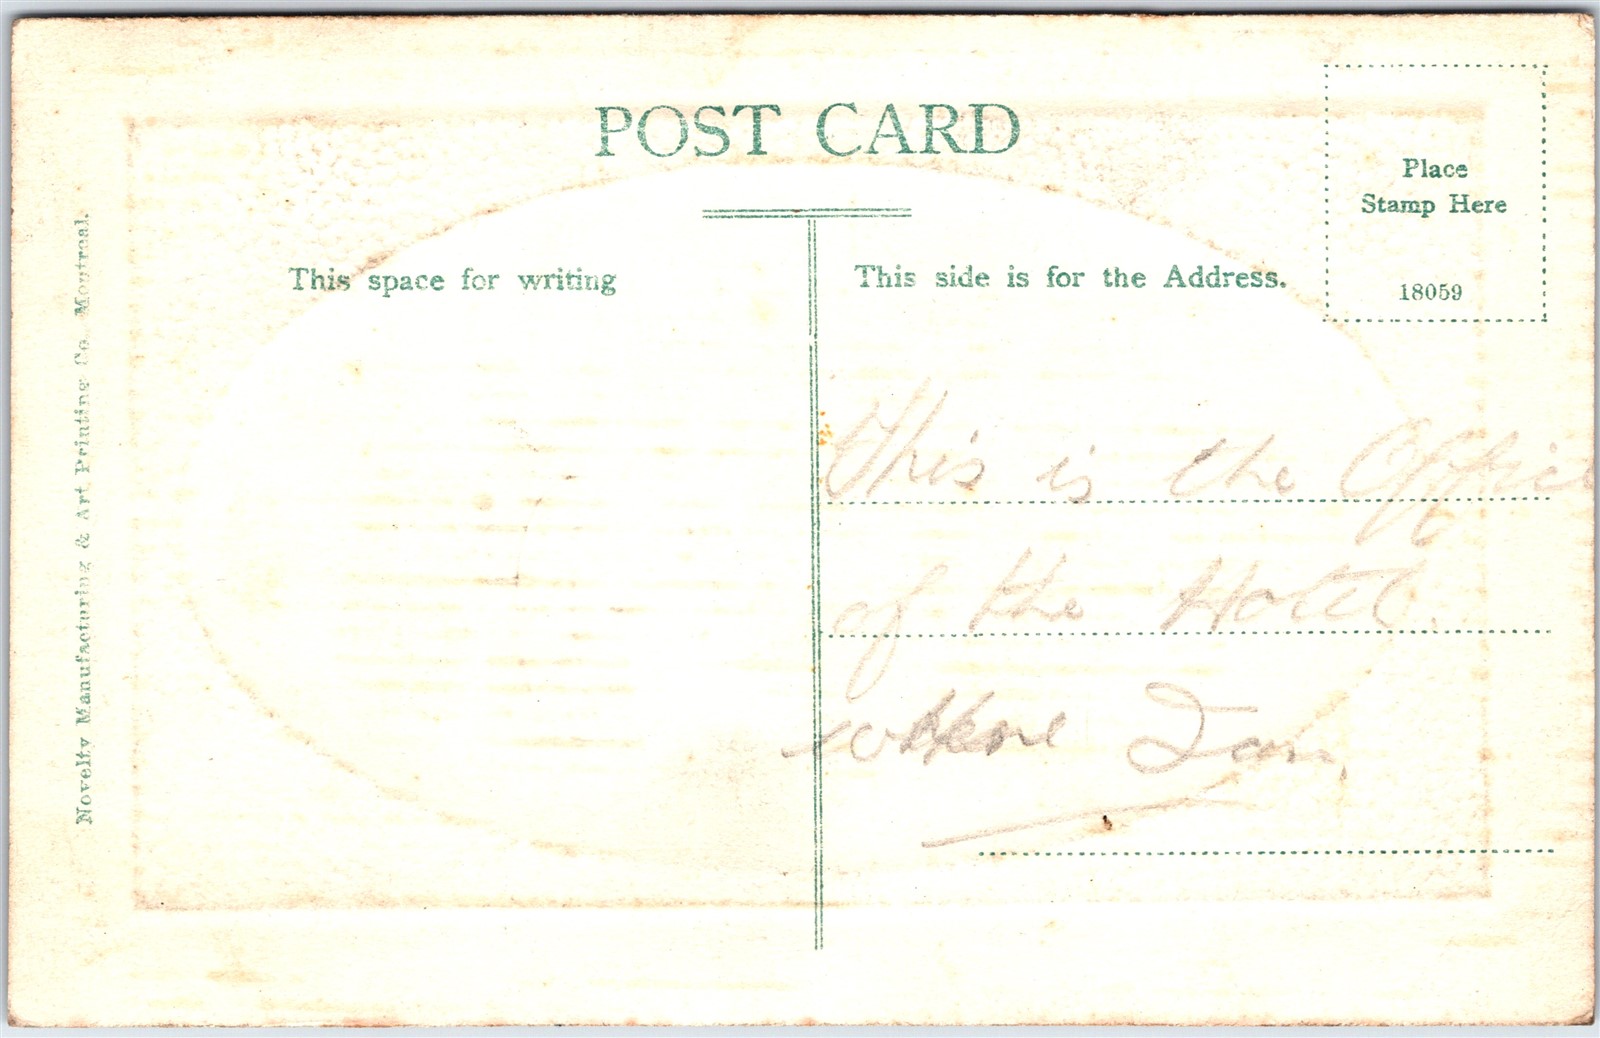 POST CARD
Place
Stamp Here
18059
This space for writing
This side is for the Address.
This is the Office
of the Hotel.
where I am,
Novelty Manufacturing & Art Printing Co. Montreal.